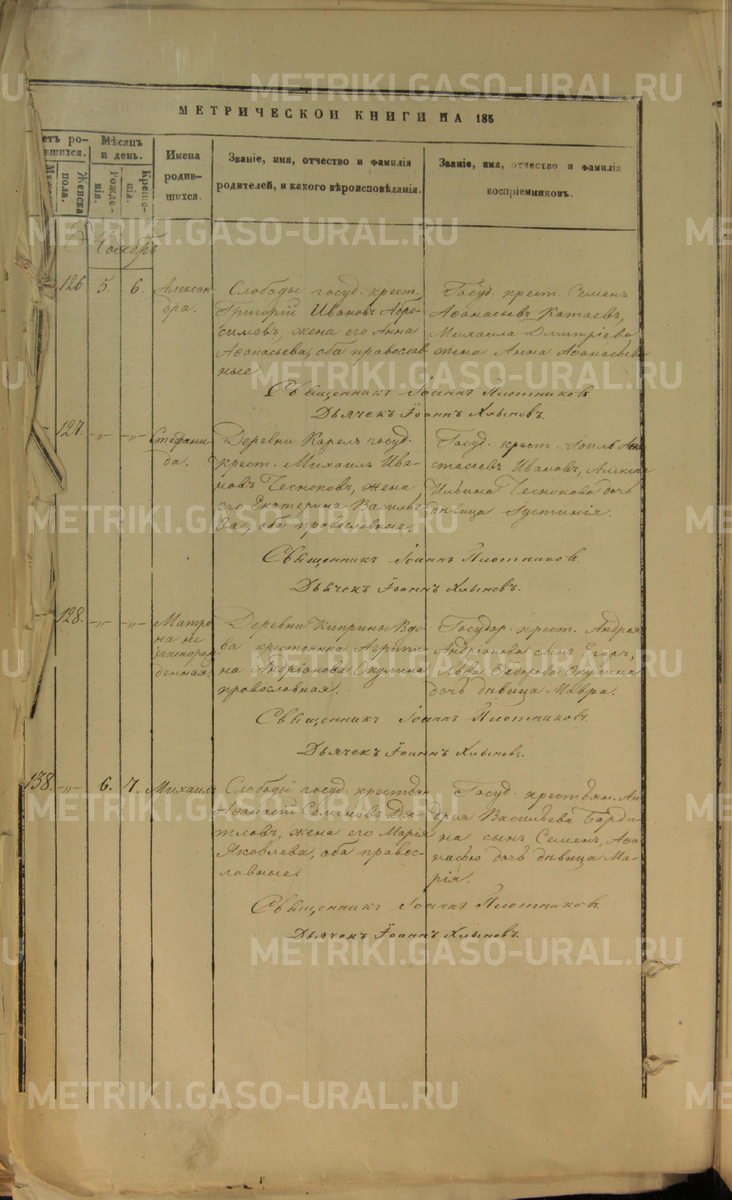 METRIKI.GASO-URAL.RU
МЕТРИЧЕСКОЙ КНИГИ НА 185
Мѣсяцъ и день.
Рожденія.
Крещенія.
Женска пола.
Имена родившихся.
Званіе, имя, отчество и фамилія родителей, и какого вѣроисповѣданія.
Званіе, имя, отчество и фамилія воспріемниковъ.
Ноябрь
126 5. 6. Александра.
Слободы госуд. крест.
Григорій Ивановъ Абросимовъ, жена его Анна
Аѳанасьева, оба православные
Госуд. крест. Семенъ
Аѳанасьевъ Катаевъ,
Михаила Дмитріева
жена Анна Аѳанасьева
Священникъ Іоаннъ Плотниковъ
Дьячекъ Іоаннъ Хлыновъ.
127. -„- -„- Стефанида.
Деревни Карелъ госуд.
крест. Михаилъ Ивановъ Чесноковъ, жена
его Екатерина Василье
ва, оба православные.
Госуд. крест.
Ивановъ, Алексѣя
Ильина Чеснокова дочь
дѣвица Густинія.
Священникъ Іоаннъ Плотниковъ
Дьячекъ Іоаннъ Хлыновъ.
128. -„- -„- Матрона незаконорожденная.
Деревни Киприны Вдова крестьянка
Андріанова
православная.
Государ. крест. Андрея
Андріанова сынъ Егоръ,
Льва Ѳедорова
дочь дѣвица Мавра.
Священникъ Іоаннъ Плотниковъ.
Дьячекъ Іоаннъ Хлыновъ.
138. -„- 6. 7. Михаилъ
Слободы госуд. крестьян
Семеновъ Дятловъ, жена его Марія
Яковлева, оба православные
Госуд. крестьян. Андрея Васильева
сынъ Семенъ,
дочь дѣвица Марія.
Священникъ Іоаннъ Плотниковъ.
Дьячекъ Іоаннъ Хлыновъ.